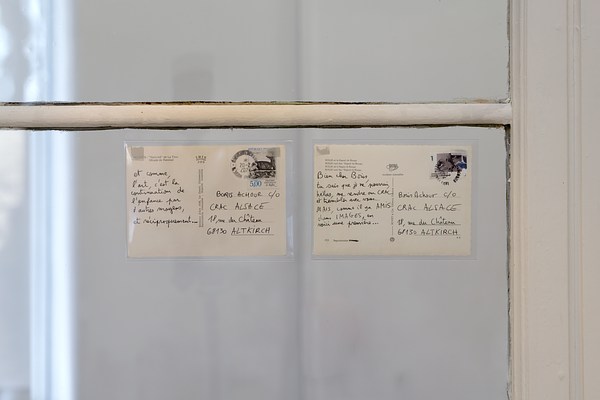 et comme,
l'art, c'est la
continuation de
l'enfance par
d'autres moyens,
et réciproquement...
5,00
BORIS ACHOUR C/O
CRAC ALSACE
18, rue du Château
68130 ALTKIRCH
Bien cher Boris,
tu sais que je ne pourrai,
hélas, me rendre au CRAC
et t'embêter avec vous.
MAIS, comme il y a AMIS
dans IMAGES, en
voici une première...
Boris Achour C/O
CRAC ALSACE
18, rue du Château
68130 ALTKIRCH